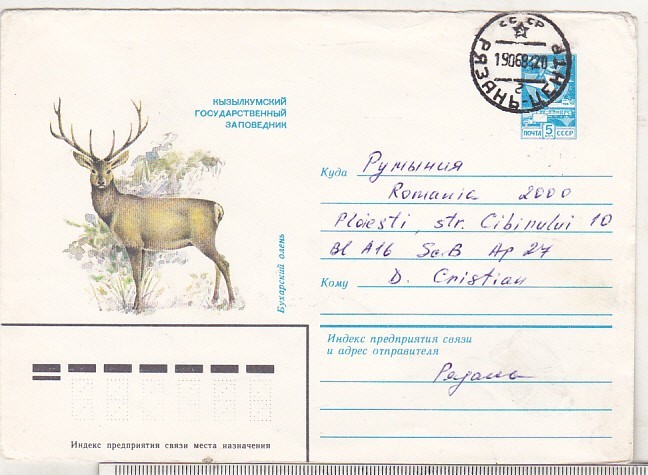 СССР
РЯЗАНЬ-ЦЕНТР
г
ПОЧТА 5 СССР
КЫЗЫЛКУМСКИЙ
ГОСУДАРСТВЕННЫЙ
ЗАПОВЕДНИК
Бухарский олень
Куда Румыния
Romania 2000
Ploiesti, str. Cibinului 10
Bl A16 Sc.B Ap 27
Кому D. Cristian
Индекс предприятия связи
и адрес отправителя
Индекс предприятия связи места назначения